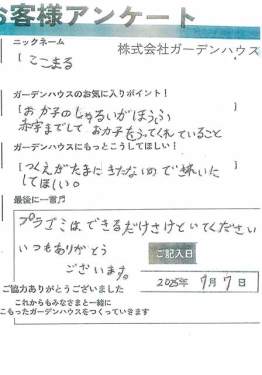 お客様アンケート
ニックネーム
株式会社ガーデンハウス
[ ここまる
ガーデンハウスのお気に入りポイント!
[お か子のしゅるいがほうふ ]
赤字までして おか子をふくれていること
ガーデンハウスにもっとこうしてほしい!
[つくえがたまにきたないのできれいに ]
してほしい。
最後に一言♬
プラゴミはできるだけさけといてください
いつもありがとう
ございます。
ご記入日
2025年 9月 7日
ご協力ありがとうございました
これからもみなさまと一緒に
こもったガーデンハウスをつくっていきます